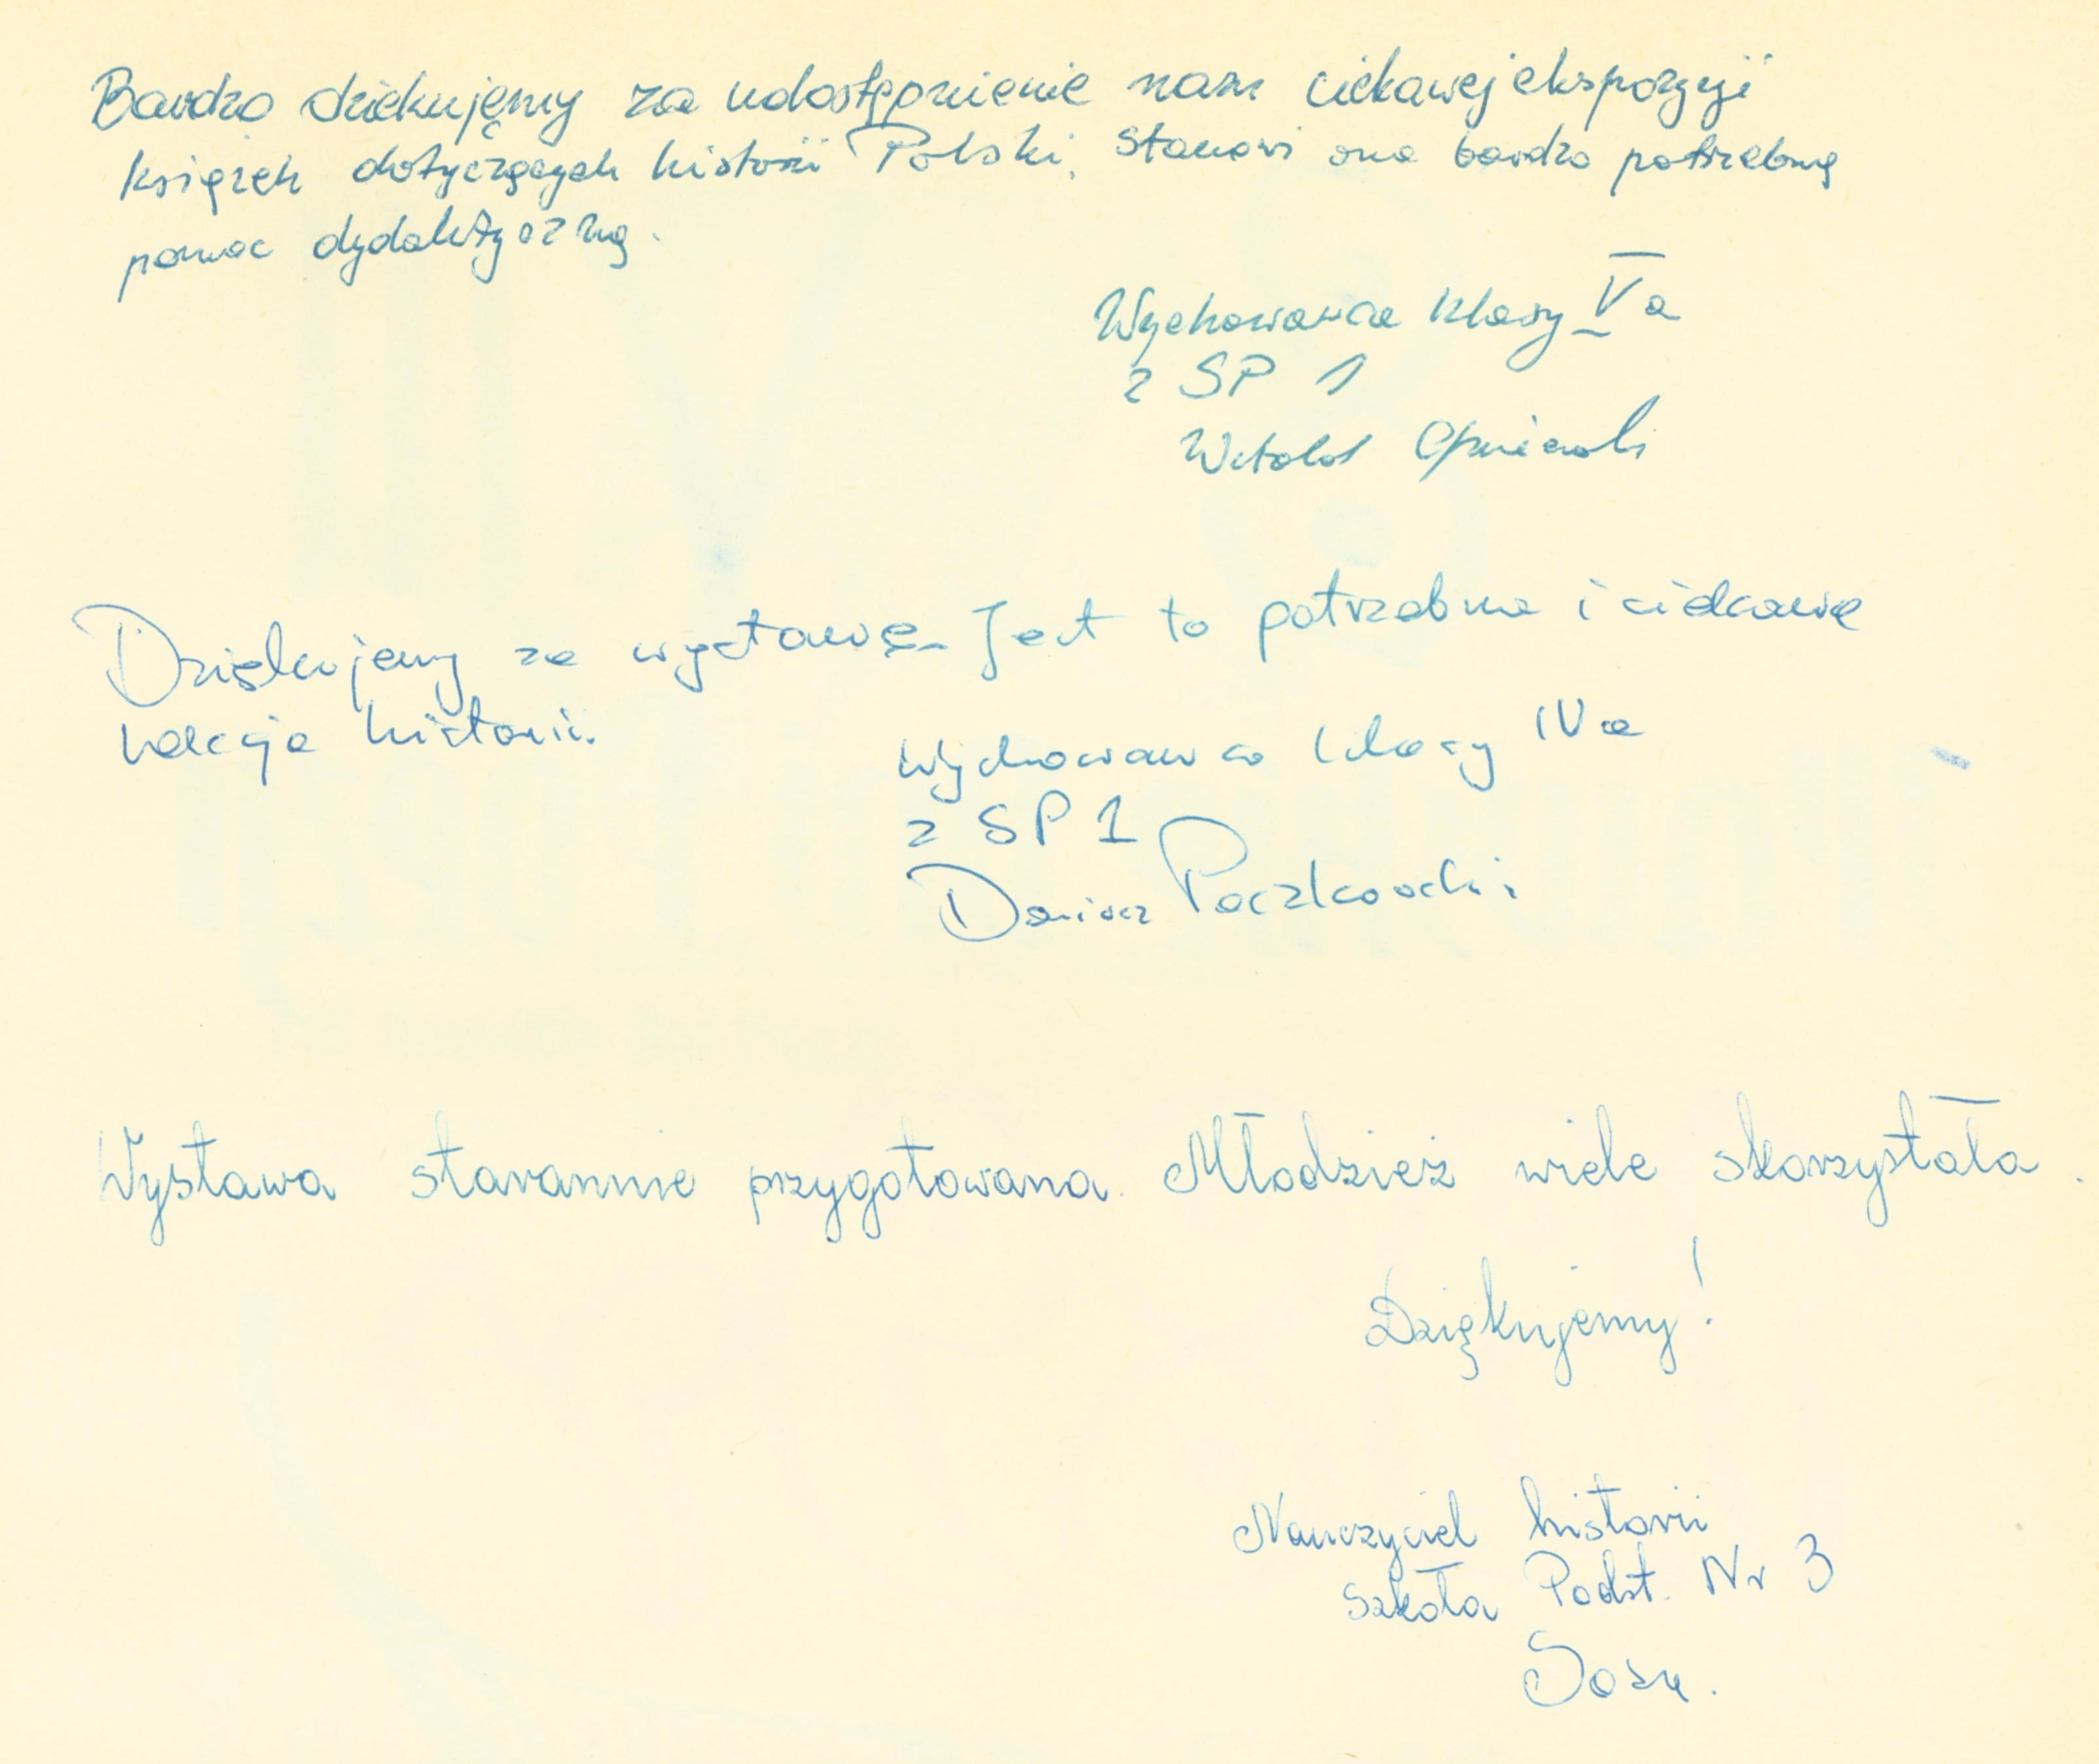 Bardzo dziękujemy za udostępnienie nam ciekawej ekspozycji
książek dotyczących historii Polski. Stanowi ona bardzo potrzebną
pomoc dydaktyczną.
Wychowawca klasy V a
z SP 1
Witold
Dziękujemy za wystawę. Jest to potrzebna i ciekawa
lekcja historii.
Wychowawca klasy IV a
z SP 1
Dariusz Paczkowski
Wystawa starannie przygotowana. Młodzież wiele skorzystała.
Dziękujemy!
Nauczyciel historii
Szkoła Podst. Nr 3